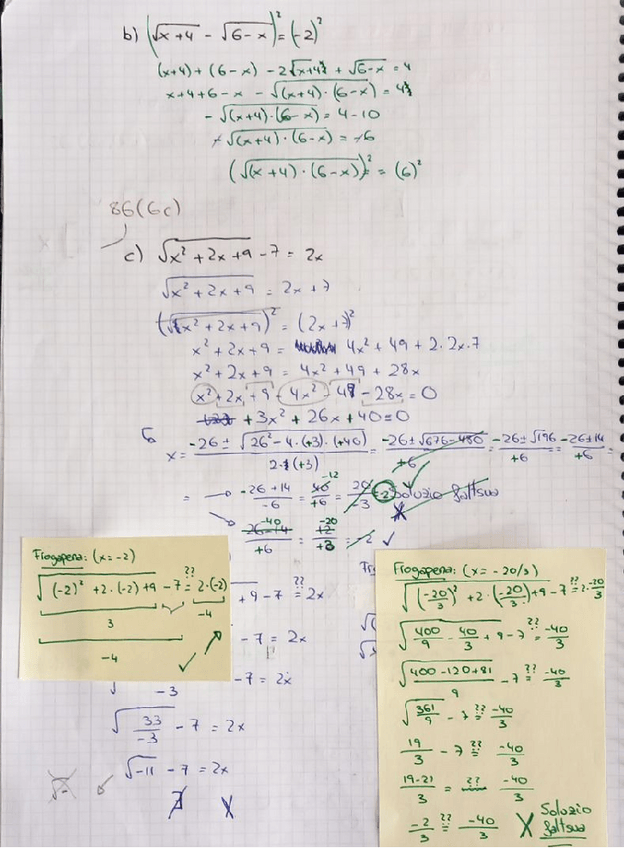 b) (√x+4 - √6-x)² = (-2)²
(x+4) + (6-x) - 2√x+4 + √6-x = 4
x+4+6-x - √(x+4)·(6-x) = 4
- √(x+4)·(6-x) = 4-10
-√(x+4)·(6-x) = -6
(√(x+4)·(6-x))² = (6)²
86(6c)
c) √x²+2x+9 - 7 = 2x
√x²+2x+9 = 2x+7
(√x²+2x+9)² = (2x+7)²
x²+2x+9 = 4x²+49+2·2x·7
x²+2x+9 = 4x²+49+28x
x²+2x+9-4x²-49-28x = 0
+3x²+26x+40=0
x = -26±√26²-4·(+3)·(+40) / 2·(+3) = -26±√676-480 / +6 = -26±√196 / +6 = -26±14 / +6 =
= → -26+14 / -6 = -12 / +6 = -2 Soluzio faltsua
→ -40 / +6 = -20 / +3 = -2 ✓
Frogapena: (x=-2)
√(-2)²+2·(-2)+9 - 7 ≟ 2·(-2)
3
-4
-4
✓
+9-7 ≟ 2x
-7 = 2x
-3
-7 = 2x
√33/-3 - 7 = 2x
√-11 - 7 = 2x
∄ X
Frogapena: (x=-20/3)
√(-20/3)²+2·(-20/3)+9 - 7 ≟ 2·-20/3
√400/9 - 40/3 + 9 - 7 ≟ -40/3
√400-120+81 / 9 - 7 ≟ -40/3
√361/9 - 7 ≟ -40/3
19/3 - 7 ≟ -40/3
19-21 / 3 = ?? -40/3
-2/3 ≟ -40/3 X Soluzio faltsua